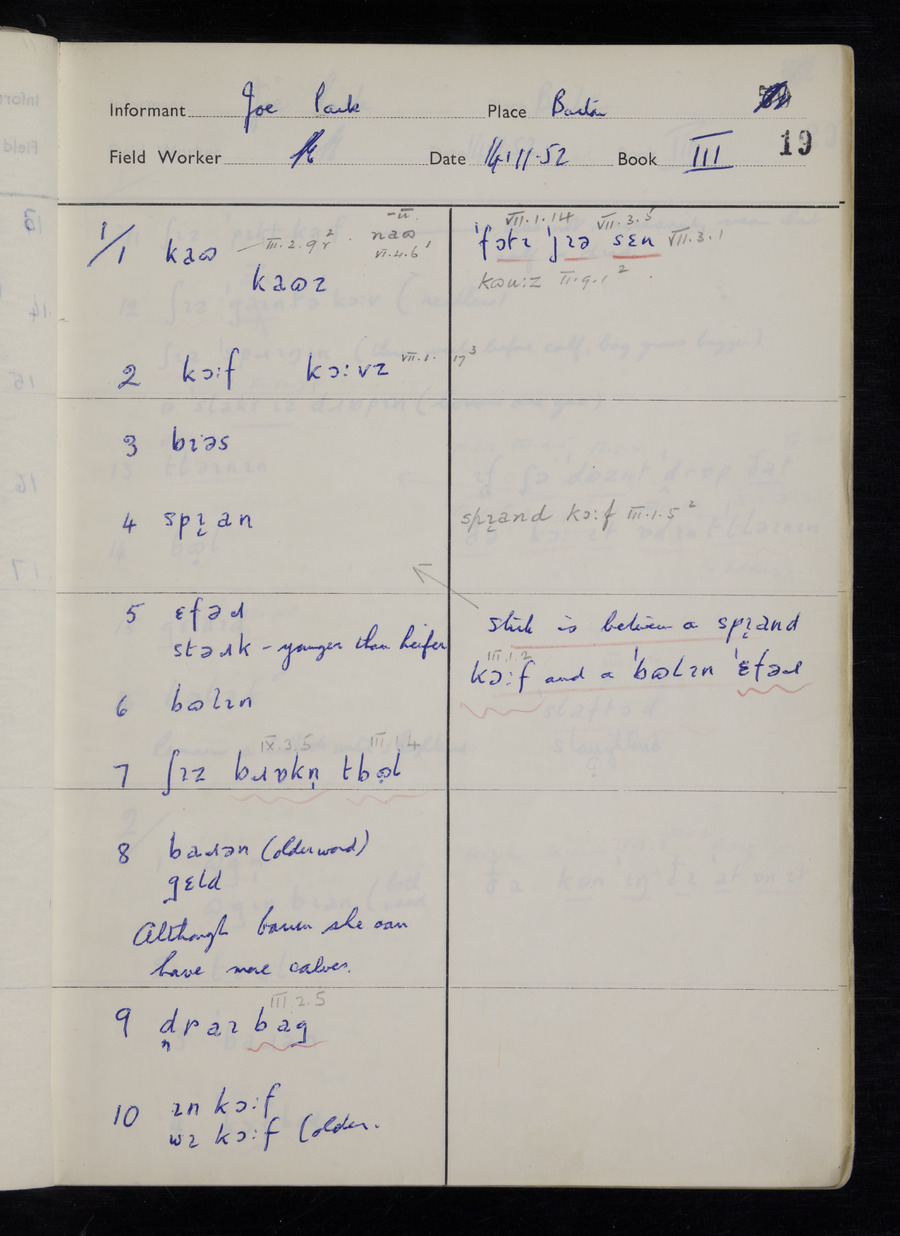 Informant Joe Park Place Barton
Field Worker Date 14.11.52 Book III 19
1/1 kaɷ III.2.9 -u. naɷ VI.4.6¹
kaɷz
2 kɔ:f kɔ:vz VII.1.17³
3 bɪəs
4 spɪ̨an
5 ɛfəɹ
stəɹk – younger than heifer
6 bɷlɪn
7 ʃɪz bɹɒkn̩ tbɷl
IX 3.5 III 1.4
8 baɹən (older word)
gɛld
Although barren she can
have more calves.
9 draɪ bag
III 2.5
10 ɪn kɔ:f
wɪ kɔ:f (older.
VII.1.14 VII.3.5
ˈfɔtɪ ˈjɪə sɛn VII.3.1
kɷu:z II.9.1²
spɪ̨and kɔ:f III.1.5²
stirk is between a spɪ̨and
III.1.2
kɔ:f and a ˈbɷlɪn ˈɛfəɹ